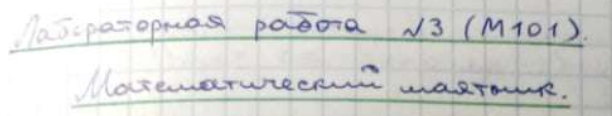 Лабораторная работа №3 (М101).
Математический маятник.